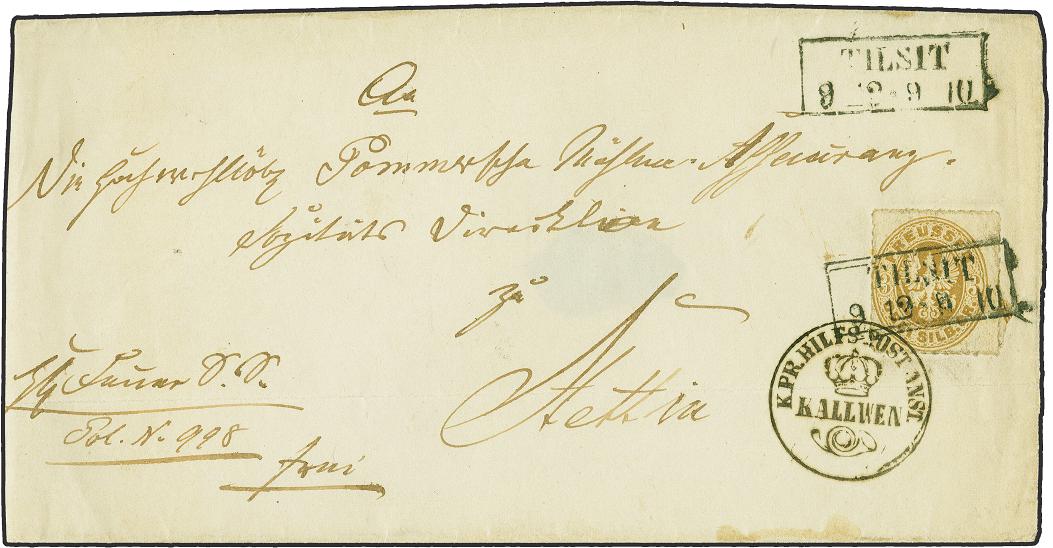 TILSIT
9 12 * 9 10
An
Die Hochwohllöbl Pommersche Mühlen-Assecuranz-
Societäts Direction
zu
Stettin
PREUSSEN
SILB. GR.
TILSIT
9 12 * 9 10
K. PR. HILFS-POST-ANST.
KALLWEN
Feuer S. S.
Pol. No 998
frei